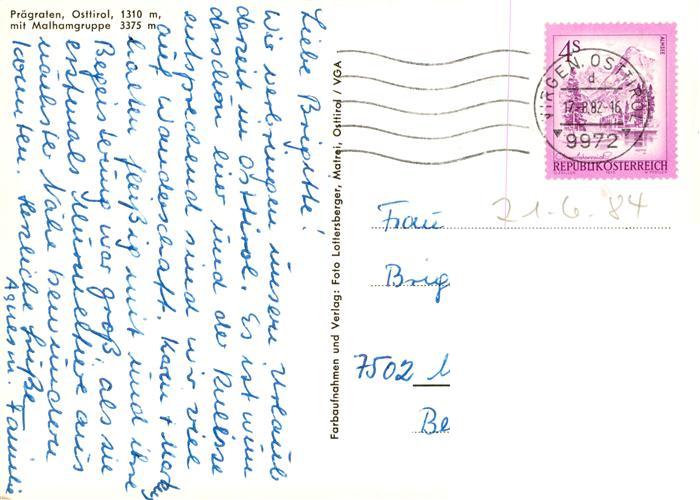 Prägraten, Osttirol, 1310 m,
mit Malhamgruppe 3375 m
Liebe Brigitte!
Wir verbringen unseren Urlaub
derzeit in Osttirol. Es ist wun
derschön hier und der Kulisse
entsprechend sind wir viel
auf Wanderschaft. Karin +
halten fleißig mit und ihre
Begeisterung war groß als sie
erstmals Murmeltiere aus
nächster Nähe bewundern
konnten. Herzliche Grüße
Agnes m. Familie
Farbaufnahmen und Verlag: Foto Lottersberger, Matrei, Osttirol / VGA
4 S
ALMSEE
REPUBLIK ÖSTERREICH
VIRGEN, OSTTIROL
d
17.-8.82-16
9972
21.6.84
Frau
Brig
7502
Be